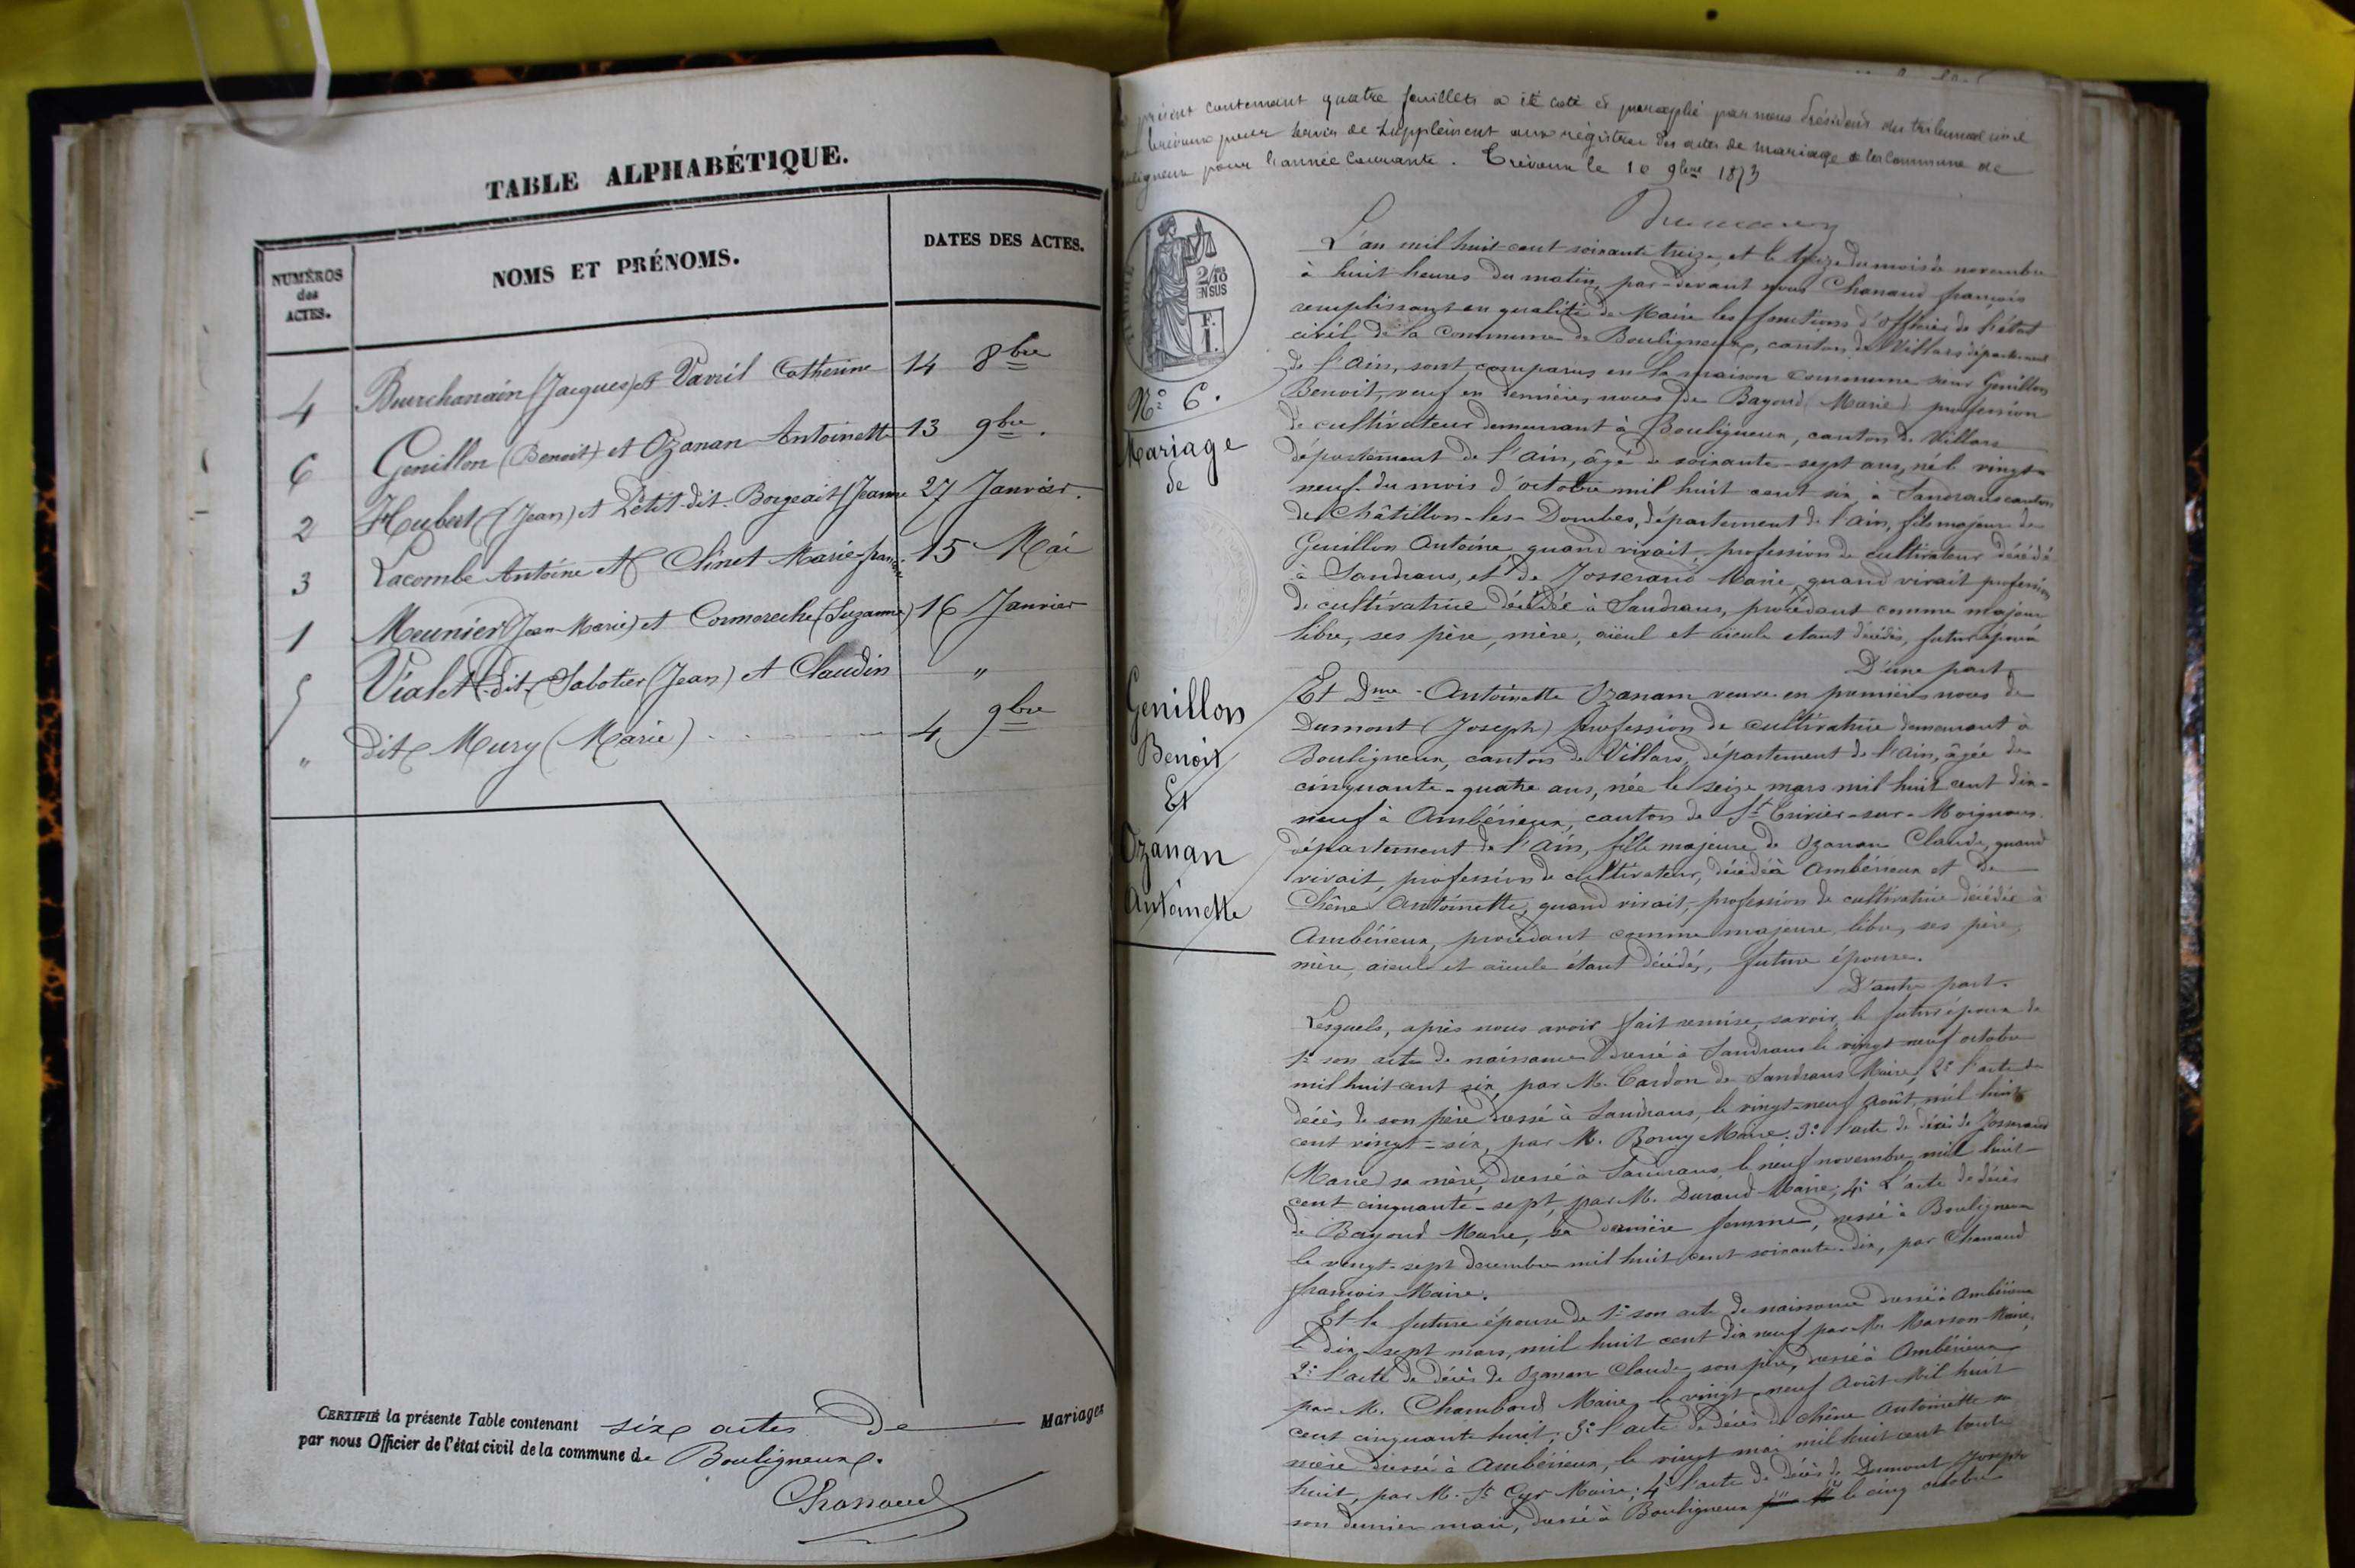 TABLE ALPHABÉTIQUE.
NUMÉROS des ACTES. NOMS ET PRÉNOMS. DATES DES ACTES.
4 (Jacques) et Catherine 14 8bre
6 Genillon (Benoit) et Ozanan Antoinette 13 9bre.
2 Hubert (Jean) et Petit-dit-Borgeait (Jeanne 27 Janvier.
3 Lacombe Antoine et Clinet Marie-françoise 15 Mai
1 Meunier (Jean-Marie) et Cormoreche (Suzanne) 16 Janvier
5 Vialet dit Sabotier (Jean) et Claudin "
" dit Mury (Marie) 4 9bre
CERTIFIÉ la présente Table contenant six actes de Mariages
par nous Officier de l'état civil de la commune de Bouligneux.
Chanaud
présent contenant quatre feuillets a été coté et paraphé par nous Président du tribunal civil
Trévoux pour servir de supplément aux registres des actes de mariage de la commune de
Bouligneux pour l'année courante. Trévoux le 10 9bre 1873
2/10 EN SUS
F.
1.
L'an mil huit-cent soixante treize, et le treize du mois de novembre
à huit heures du matin, par-devant nous Chanaud françois
remplissant en qualité de Maire les fonctions d'officier de l'état
civil de la Commune de Bouligneux, canton de Villars département
de l'Ain, sont comparus en la maison commune sieur Genillon
Benoit, veuf en dernières noces de Bayoud (Marie) profession
de cultivateur demeurant à Bouligneux, canton de Villars
département de l'Ain, âgé de soixante-sept ans, né le vingt-
neuf du mois d'octobre mil huit cent six à Sandrans canton
de Châtillon-les-Dombes, département de l'Ain, fils majeur de
Genillon Antoine, quand vivait, profession de cultivateur décédé
à Sandrans, et de Josserand Marie, quand vivait profession
de cultivatrice décédée à Sandrans, procédant comme majeur
libre, ses père, mère, aïeul et aïeule étant décédés, futur époux
D'une part
Et Dme Antoinette Ozanam veuve en premières noces de
Dumont (Joseph) profession de cultivatrice demeurant à
Bouligneux, canton de Villars, département de l'Ain, âgée de
cinquante-quatre ans, née le seize mars mil huit cent dix-
neuf à Ambérieux, canton de St Trivier-sur-Moignans
département de l'Ain, fille majeure de Ozanan Claude, quand
vivait, profession de cultivateur, décédé à Ambérieux et de
Chêne Antoinette, quand vivait, profession de cultivatrice décédée à
Ambérieux, procédant comme majeure libre, ses père,
mère, aieul et aïeule étant décédés, future épouse.
D'autre part.
Lesquels, après nous avoir fait remise, savoir, le futur époux de
1º son acte de naissance dressé à Sandrans le vingt-neuf octobre
mil huit cent six, par M. Cardon de Sandrans Maire, 2º l'acte de
décès de son père dressé à Sandrans, le vingt-neuf août, mil huit
cent vingt-six, par M. Maire; 3º l'acte de décès de Josserand
(Marie) sa mère, dressé à Sandrans le neuf novembre mil huit
cent cinquante-sept, par M. Durand Maire; 4º L'acte de décès
de Bayoud Marie, sa dernière femme, dressé à Bouligneux
le vingt-sept décembre mil huit cent soixante-dix, par Chanaud
françois Maire.
Et la future épouse de 1º son acte de naissance dressé à Ambérieux
le dix-sept mars, mil huit cent dix neuf par M. Marson Maire,
2º l'acte de décès de Ozanan Claude, son père, dressé à Ambérieux
par M. Chambard Maire, le vingt-neuf Août Mil huit
cent cinquante huit; 3º l'acte de décès de Chêne Antoinette sa
mère dressé à Ambérieux, le vingt mai mil huit cent trente
huit, par M. St Cyr Maire; 4º l'acte de décès de Dumont Joseph
son dernier mari, dressé à Bouligneux le cinq octobre
Nº 6.
Mariage
de
Genillon
Benoit
Et
Ozanan
Antoinette